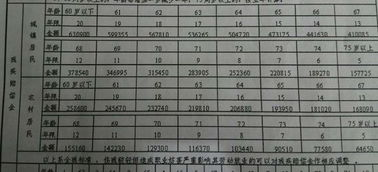 年龄 60岁以下 61 62 63 64 65 66 67
年限 20 19 18 17 16 15 14 13
金额 630900 599355 567810 536265 504720 473175 441630 410085
年龄 68 69 70 71 72 73 74 75岁以上
年限 12 11 10 9 8 7 6 5
金额 378540 346995 315450 283905 252360 220815 189270 157725
年龄 60岁以下 61 62 63 64 65 66 67
年限 20 19 18 17 16 15 14 13
金额 258600 245670 232740 219810 206880 193950 181020 168090
年龄 68 69 70 71 72 73 74 75岁以上
年限 12 11 10 9 8 7 6 5
金额 155160 142230 129300 116370 103440 90510 77580 64650
城镇居民
农村居民
残疾赔偿金
以上系全残标准，伤残较轻但造成职业妨害严重影响其劳动就业的可以对残疾赔偿金作相应调整。